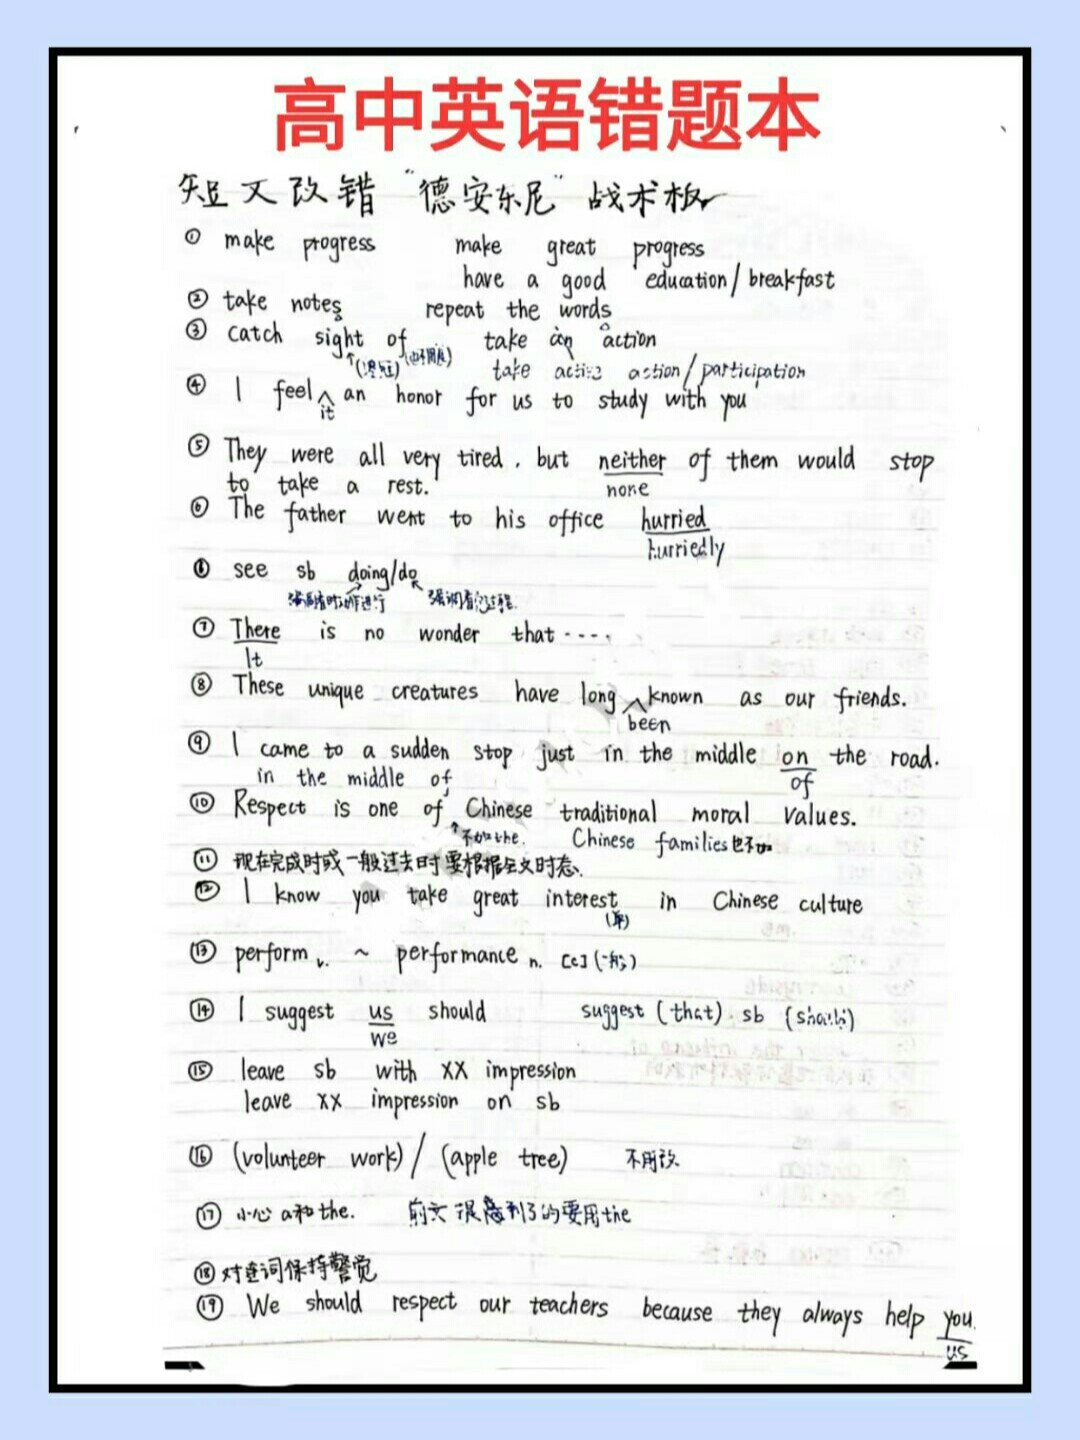 高中英语错题本
短文改错 "德安东尼" 战术板
① make progress make great progress
have a good education/breakfast
② take notes repeat the words
③ catch sight of take an action
take active action/participation
④ I feel an honor for us to study with you
it
⑤ They were all very tired, but neither of them would stop
to take a rest. none
⑥ The father went to his office hurried
hurriedly
⑥ see sb doing/do
⑦ There is no wonder that ....
It
⑧ These unique creatures have long known as our friends.
been
⑨ I came to a sudden stop just in the middle on the road.
in the middle of of
⑩ Respect is one of Chinese traditional moral values.
不加the. Chinese families也不加
⑪ 现在完成时或一般过去时要根据全文时态.
⑫ I know you take great interest in Chinese culture
(单)
⑬ perform v. ~ performance n. [c]
⑭ I suggest us should suggest (that) sb (should)
we
⑮ leave sb with XX impression
leave XX impression on sb
⑯ (volunteer work) / (apple tree) 不用改
⑰ 小心 a和the. 前文提到了的要用the
⑱ 对连词保持警觉
⑲ We should respect our teachers because they always help you.
us